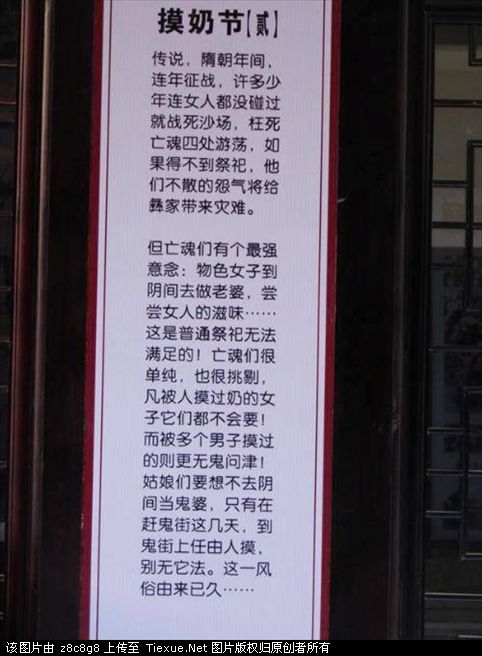 摸奶节[贰]
传说，隋朝年间，
连年征战，许多少
年连女人都没碰过
就战死沙场，枉死
亡魂四处游荡，如
果得不到祭祀，他
们不散的怨气将给
彝家带来灾难。
但亡魂们有个最强
意念：物色女子到
阴间去做老婆，尝
尝女人的滋味……
这是普通祭祀无法
满足的！亡魂们很
单纯，也很挑剔，
凡被人摸过奶的女
子它们都不会要！
而被多个男子摸过
的则更无鬼问津！
姑娘们要想不去阴
间当鬼婆，只有在
赶鬼街这几天，到
鬼街上任由人摸，
别无它法。这一风
俗由来已久……
该图片由 z8c8g8 上传至 Tiexue.Net 图片版权归原创者所有